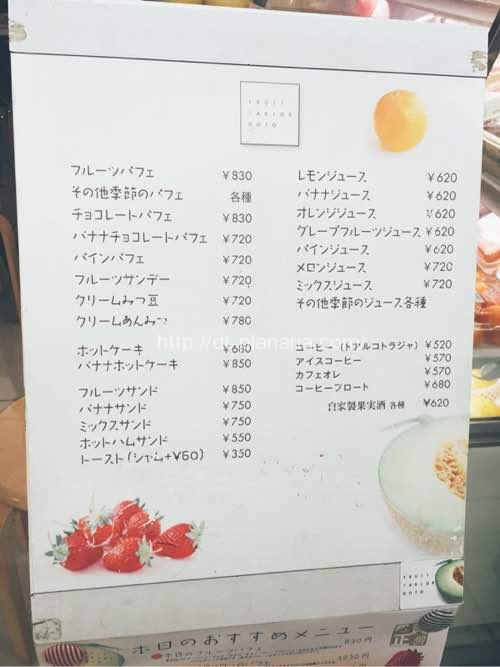 FRUIT
PARLOR
GOTO
フルーツパフェ ¥830
その他季節のパフェ 各種
チョコレートパフェ ¥830
バナナチョコレートパフェ ¥720
パインパフェ ¥720
フルーツサンデー ¥720
クリームみつ豆 ¥720
クリームあんみつ ¥780
ホットケーキ ¥680
バナナホットケーキ ¥850
フルーツサンド ¥850
バナナサンド ¥750
ミックスサンド ¥750
ホットハムサンド ¥550
トースト(ジャム+¥50) ¥350
レモンジュース ¥620
バナナジュース ¥620
オレンジジュース ¥620
グレープフルーツジュース ¥620
パインジュース ¥620
メロンジュース ¥720
ミックスジュース ¥720
その他季節のジュース各種
コーヒー(トアルコトラジャ) ¥520
アイスコーヒー ¥570
カフェオレ ¥570
コーヒーフロート ¥680
自家製果実酒 各種 ¥620
http://dt-planaria.com/
FRUIT
PARLOR
GOTO
本日のおすすめメニュー
本日のフルーツパフェ 830円